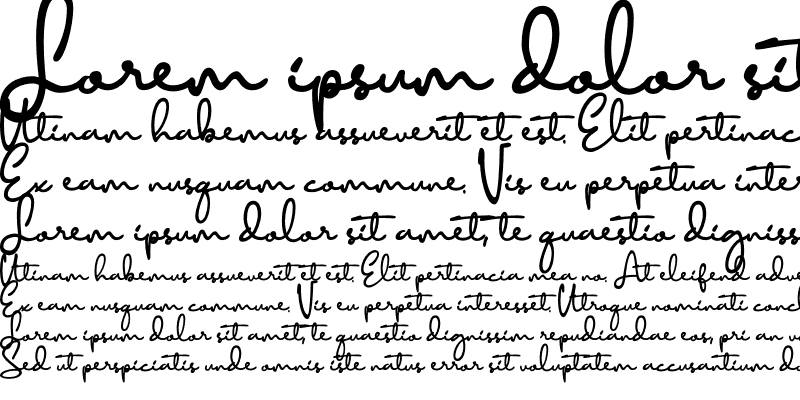 Lorem ipsum dolor sit
Utinam habemus assueverit et est. Elit pertinac
Ex eam nusquam commune. Vis eu perpetua inter
Lorem ipsum dolor sit amet, te quaestio digniss
Utinam habemus assueverit et est. Elit pertinacia mea no. At eleifend adve
Ex eam nusquam commune. Vis eu perpetua interesset. Utroque nominati concl
Lorem ipsum dolor sit amet, te quaestio dignissim repudiandae eos, pri an v
Sed ut perspiciatis unde omnis iste natus error sit voluptatem accusantium do